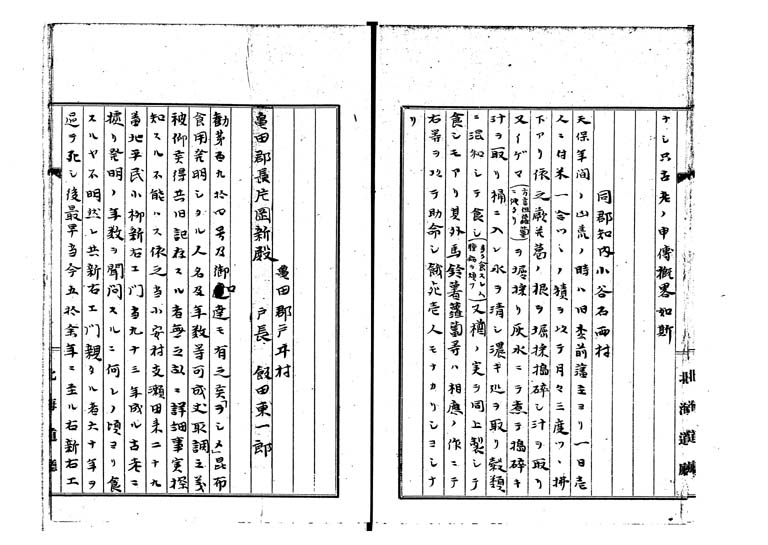 ナシ只古老ノ申傳概畧如斯
同郡知内小谷石両村
天保年間ノ山荒ノ時ハ旧松前藩主ヨリ一日壱
人ニ付米一合ツヽノ積ヲ以テ月々三度ツヽ拂
下アリ依之蕨葛ノ根ヲ掘採搗碎シ汁ヲ取リ
又イゲマ
ヲ掘採リ灰水ニテ煮ヲ搗碎キ
汁ヲ取リ桶ニ入レ水ヲ清シ濃キ処ヲ取リ穀類
ニ混和シテ食シ
又樽ノ実ヲ同上製シテ
食シモアリ其外馬鈴薯蘿蔔等ハ相應ノ作ニテ
右等ヲ以テ助命シ餓死壱人モナカリシヨシナ
リ
北海道廳
亀田郡戸井村
戸長 飯田東一郎
亀田郡長片岡新殿
勧第百九拾四号及御達モ有之
昆布
食用発明シタル人名及年数等可成丈取調之義
被仰
得共旧記存スル者無之故ニ詳細事実探
知スル不能ハス依之当小安村支瀬田来二十九
番地平民小柳新右エ門当九十三年成ル古老ニ
據リ発明ノ年数ヲ聞問スルニ何レノ頃ヨリ食
スルヤ不明然レ共新右エ門親タル者六十年ヲ
過テ死シ後最早当今五拾余年ニ至ル右新右エ
北海道廳